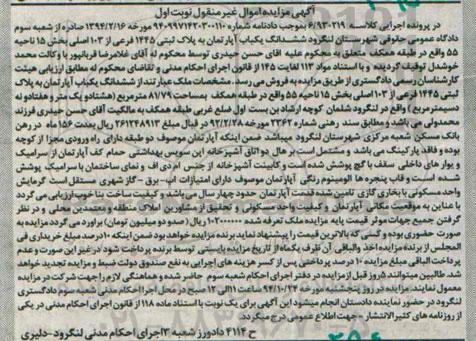 آگهی مزایده اموال غیر منقول نوبت اول
در پرونده اجرایی کلاسه ۶/۹۳-۳۱۹ بموجب دادنامه شماره ۹۴۰۹۹۷۱۴۳۰۳۰۰۱۱۰ مورخه ۱۳۹۴/۲/۱۶ صادره از شعبه سوم
دادگاه عمومی حقوقی شهرستان لنگرود ششدانگ یکباب آپارتمان به پلاک ثبتی ۱۴۴۵ فرعی از ۱۰۳ اصلی بخش ۱۵ ناحیه
۵۵ واقع در طبقه همکف متعلق به محکوم علیه اقای حسن حیدری توسط محکوم له آقای غلامرضا قربانپور با وکالت محمد
خوشدل توقیف گردیده و با استناد مواد ۱۱۳ لغایت ۱۴۵ از قانون اجرای احکام مدنی و تقاضای محکوم له مطابق ارزیابی هیئت
کارشناسان رسمی دادگستری از طریق مزایده به فروش می رسد. مشخصات ملک عبارتند از ششدانگ یکباب آپارتمان به پلاک
ثبتی ۱۴۴۵ فرعی از ۱۰۳ اصلی بخش ۱۵ ناحیه ۵۵ واقع در طبقه همکف به مساحت ۸۱/۷۹ مترمربع (هشتاد و یک متر و هفتاد و نه
دسیمترمربع) واقع در لنگرود شلمان کوچه ارشاد بن بست اول ضلع غربی طبقه همکف به مالکیت آقای حسن حیدری فرزند
محمدولی می باشد و مطابق سند رهنی شماره ۳۳۶۲ مورخه ۹۲/۲/۲۸ در قبال مبلغ ۲۶۱۲۴۸۹۱۳ ریال بمدت ۱۵۶ ماه در رهن
بانک مسکن شعبه مرکزی شهرستان لنگرود میباشد ضمن اینکه آپارتمان موصوف دو طبقه دارای راه ورودی مجزا از کوچه
بوده و فاقد پارکینگ می باشد و مشتمل است بر هال دو اتاق آشپزخانه این سرویس بهداشتی حمام کف آپارتمان از سرامیک
و یوار های داخلی سقف با گچ پوشش شده است و کابینت آشپزخانه از جنس ام دی اف و نمای خارجی ساختمان با سرامیک پوشش
شده است و قاب پنجره ها الومینیوم رنگی آپارتمان موصوف دارای امتیازات آب-برق-گاز شهری مستقل است گرمایش
واحد مسکونی با بخاری گازی تامین شده قدمت آپارتمان حدود چهار سال می باشد و کیفیت ساخت بنا خوب ارزیابی می گردد
با عنایت به موقعیت مکانی آپارتمان و کیفیت واحد مسکونی و تحقیق از مشاورین املاک منطقه و معتمدین محلی و در نظر
گرفتن جمیع جهات موثر قیمت پایه مزایده ملک تعرفه شده ۱۰۳۰۰۰۰۰۰۰ ریال (صد و سه میلیون تومان) براورد می گردد مزایده به
صورت حضوری بوده و کسی که بالاترین قیمت را پیشنهاد نماید برنده مزایده خواهد بود ضمن اینکه ۱۰ درصد مبلغ خریداری فی
المجلس از برنده مزایده اخذ والباقی آن ظرف یکماه از تاریخ مزایده بایستی توسط برنده پرداخت شود در غیر این صورت و عدم
پرداخت الباقی مبلغ مزایده ۱۰ درصد پرداختی پس از کسر هزینه های اجرایی به نفع صندوق دولت ضبط و مزایده تجدید خواهد
شد. طالبین میتوانند ۵ روز قبل از مزایده در دفتر اجرای احکام شعبه سوم حاضر شده و هماهنگی لازم را جهت شرکت در مزایده
معمول نمایند. مزایده در روز پنجشنبه مورخه ۹۴/۱۰/۲۴ ساعت ۱۱ الی ۱۲ صبح در محل اجرا احکام مدنی شعبه سوم دادگستری
لنگرود در حضور نماینده دادستان انجام میشود این آگهی برای یک نوبت با استناد ماده ۱۱۸ از قانون اجرای احکام مدنی در یکی
از روزنامه های کثیرالانتشار - جهت اطلاع عمومی درج میگردد.
ح ۴۱۱۴ دادورز شعبه ۳ اجرای احکام مدنی لنگرود-دلیری